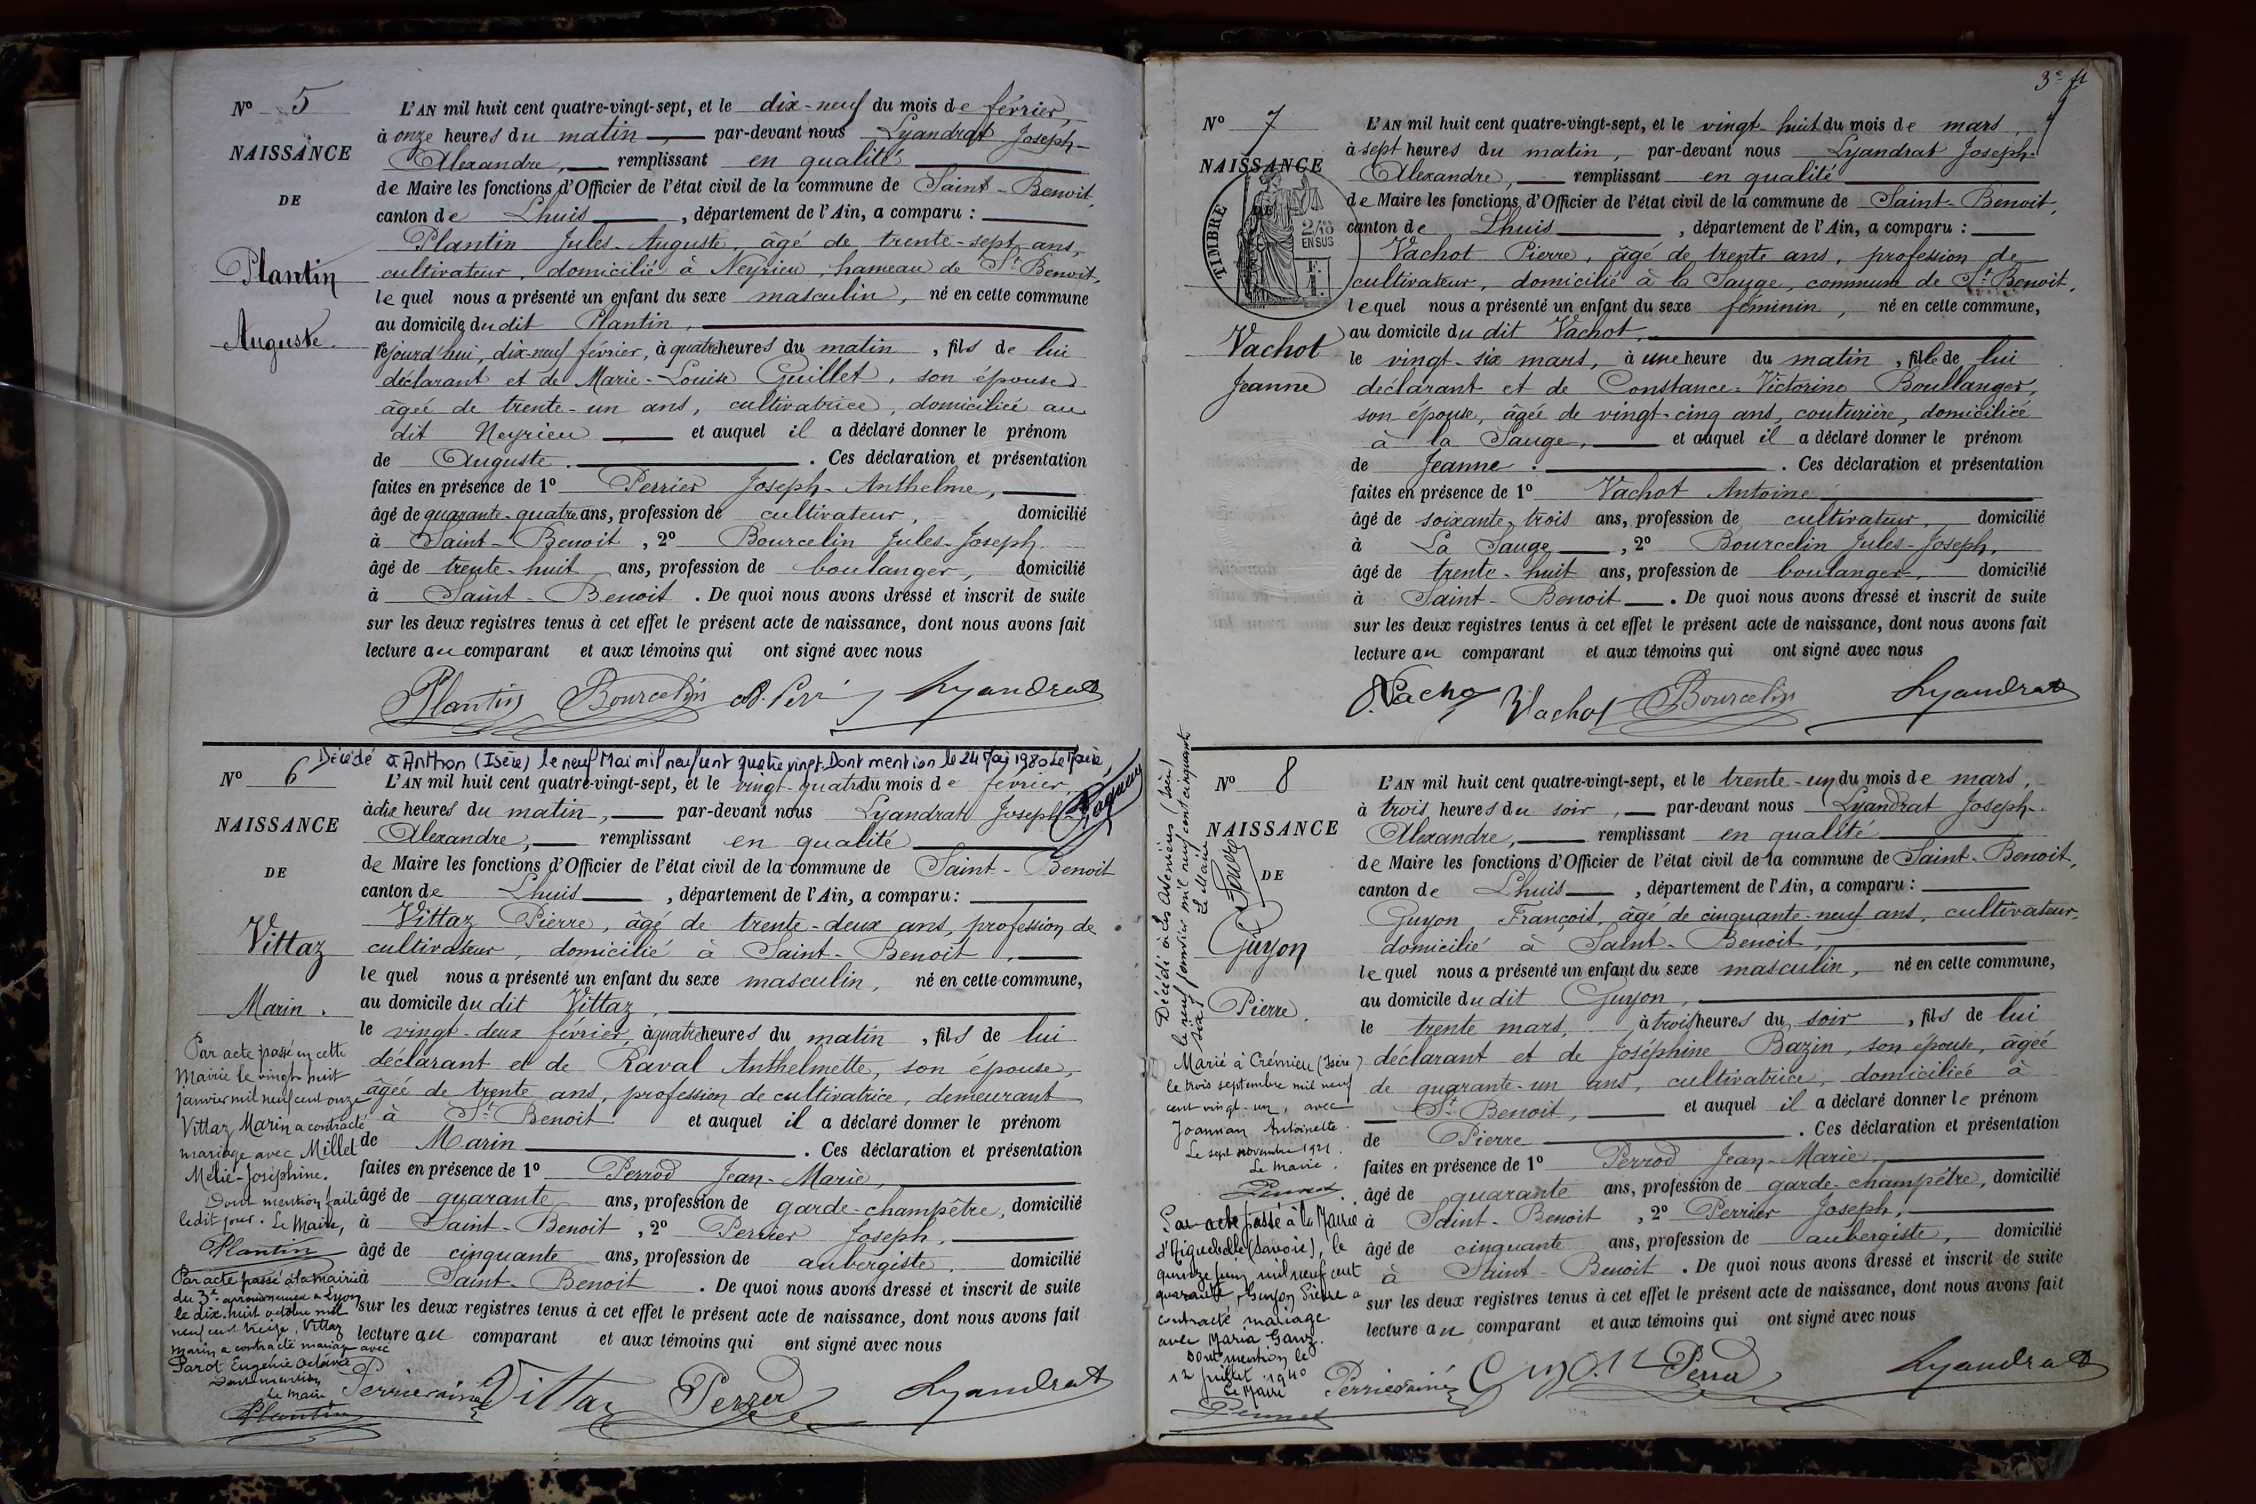 Nº 5
NAISSANCE
DE
Plantin
Auguste.
L'AN mil huit cent quatre-vingt-sept, et le dix-neuf du mois de février,
à onze heures du matin, par-devant nous Lyandrat Joseph-
Alexandre, remplissant en qualité
de Maire les fonctions d'Officier de l'état civil de la commune de Saint-Benoit,
canton de Lhuis, département de l'Ain, a comparu :
Plantin Jules-Auguste, âgé de trente-sept ans,
cultivateur, domicilié à Neyrieu, hameau de St Benoit,
lequel nous a présenté un enfant du sexe masculin, né en cette commune
au domicile du dit Plantin,
cejourd'hui, dix-neuf février, à quatre heures du matin, fils de lui
déclarant et de Marie-Louise Guillet, son épouse
âgée de trente-un ans, cultivatrice, domiciliée au
dit Neyrieu et auquel il a déclaré donner le prénom
de Auguste. Ces déclaration et présentation
faites en présence de 1º Perrier Joseph-Anthelme,
âgé de quarante-quatre ans, profession de cultivateur, domicilié
à Saint-Benoit, 2º Bourcelin Jules-Joseph
âgé de trente-huit ans, profession de boulanger, domicilié
à Saint-Benoit. De quoi nous avons dressé et inscrit de suite
sur les deux registres tenus à cet effet le présent acte de naissance, dont nous avons fait
lecture au comparant et aux témoins qui ont signé avec nous
Plantin Bourcelin Lyandrat
Décédé à Anthon (Isère) le neuf Mai mil neuf cent quatre vingt. Dont mention le 24 Mai 1980 Le Maire,
Nº 6
NAISSANCE
DE
Vittaz
Marin.
L'AN mil huit cent quatre-vingt-sept, et le vingt-quatre du mois de février,
à dix heures du matin, par-devant nous Lyandrat Joseph-
Alexandre, remplissant en qualité
de Maire les fonctions d'Officier de l'état civil de la commune de Saint-Benoit
canton de Lhuis, département de l'Ain, a comparu :
Vittaz Pierre, âgé de trente-deux ans, profession de
cultivateur, domicilié à Saint-Benoit,
lequel nous a présenté un enfant du sexe masculin, né en cette commune,
au domicile du dit Vittaz,
le vingt-deux février, à quatre heures du matin, fils de lui
déclarant et de Raval Anthelmette, son épouse,
âgée de trente ans, profession de cultivatrice, demeurant
à St Benoit et auquel il a déclaré donner le prénom
de Marin. Ces déclaration et présentation
faites en présence de 1º Perrod Jean-Marie,
âgé de quarante ans, profession de garde-champêtre, domicilié
à Saint-Benoit, 2º Perrier Joseph,
âgé de cinquante ans, profession de aubergiste, domicilié
à Saint-Benoit. De quoi nous avons dressé et inscrit de suite
sur les deux registres tenus à cet effet le présent acte de naissance, dont nous avons fait
lecture au comparant et aux témoins qui ont signé avec nous
Perrier ainé Vittaz Perrod Lyandrat
Par acte passé en cette
Mairie le vingt-huit
janvier mil neuf cent onze
Vittaz Marin a contracté
mariage avec Millet
Mélie-Joséphine.
Dont mention faite
ledit jour. Le Maire,
Plantin
Par acte passé à la mairie
du 3e arrondissement à Lyon
le dix-huit octobre mil
neuf cent treize, Vittaz
Marin a contracté mariage avec
Parot Eugénie Octavie
Dont mention
Le Maire
Plantin
3e ft
Nº 7
NAISSANCE
DE
TIMBRE
2/10
EN SUS
Vachot
Jeanne
L'AN mil huit cent quatre-vingt-sept, et le vingt-huit du mois de mars,
à sept heures du matin, par-devant nous Lyandrat Joseph-
Alexandre, remplissant en qualité
de Maire les fonctions d'Officier de l'état civil de la commune de Saint-Benoit,
canton de Lhuis, département de l'Ain, a comparu :
Vachot Pierre, âgé de trente ans, profession de
cultivateur, domicilié à la Sauge, commune de St Benoit,
lequel nous a présenté un enfant du sexe féminin, né en cette commune,
au domicile du dit Vachot,
le vingt-six mars, à une heure du matin, fille de lui
déclarant et de Constance-Victorine Boullanger,
son épouse, âgée de vingt-cinq ans, couturière, domiciliée
à la Sauge, et auquel il a déclaré donner le prénom
de Jeanne. Ces déclaration et présentation
faites en présence de 1º Vachot Antoine
âgé de soixante-trois ans, profession de cultivateur, domicilié
à La Sauge, 2º Bourcelin Jules-Joseph,
âgé de trente-huit ans, profession de boulanger, domicilié
à Saint-Benoit. De quoi nous avons dressé et inscrit de suite
sur les deux registres tenus à cet effet le présent acte de naissance, dont nous avons fait
lecture au comparant et aux témoins qui ont signé avec nous
Vachot Bourcelin Lyandrat
Nº 8
NAISSANCE
DE
Guyon
Pierre.
L'AN mil huit cent quatre-vingt-sept, et le trente-un du mois de mars,
à trois heures du soir, par-devant nous Lyandrat Joseph-
Alexandre, remplissant en qualité
de Maire les fonctions d'Officier de l'état civil de la commune de Saint-Benoit,
canton de Lhuis, département de l'Ain, a comparu :
Guyon François, âgé de cinquante-neuf ans, cultivateur,
domicilié à Saint-Benoit,
lequel nous a présenté un enfant du sexe masculin, né en cette commune,
au domicile du dit Guyon,
le trente mars, à trois heures du soir, fils de lui
déclarant et de Joséphine Bazin, son épouse, âgée
de quarante-un ans, cultivatrice, domiciliée à
St Benoit, et auquel il a déclaré donner le prénom
de Pierre. Ces déclaration et présentation
faites en présence de 1º Perrod Jean-Marie,
âgé de quarante ans, profession de garde-champêtre, domicilié
à Saint-Benoit, 2º Perrier Joseph,
âgé de cinquante ans, profession de aubergiste, domicilié
à Saint-Benoit. De quoi nous avons dressé et inscrit de suite
sur les deux registres tenus à cet effet le présent acte de naissance, dont nous avons fait
lecture au comparant et aux témoins qui ont signé avec nous
Perrier ainé Guyon Perrod Lyandrat
Décédé à Les Avenières (Isère)
le neuf janvier mil neuf cent cinquante
six
Le Maire
Marié à Crémieu (Isère)
le trois septembre mil neuf
cent vingt-un, avec
Joannan Antoinette.
Le sept novembre 1921.
Le Maire,
Par acte passé à la Mairie
d'Aiguebelle (Savoie), le
quinze juin mil neuf cent
quarante, Guyon Pierre a
contracté mariage
avec Maria Ganz.
Dont mention le
12 juillet 1940
Le Maire